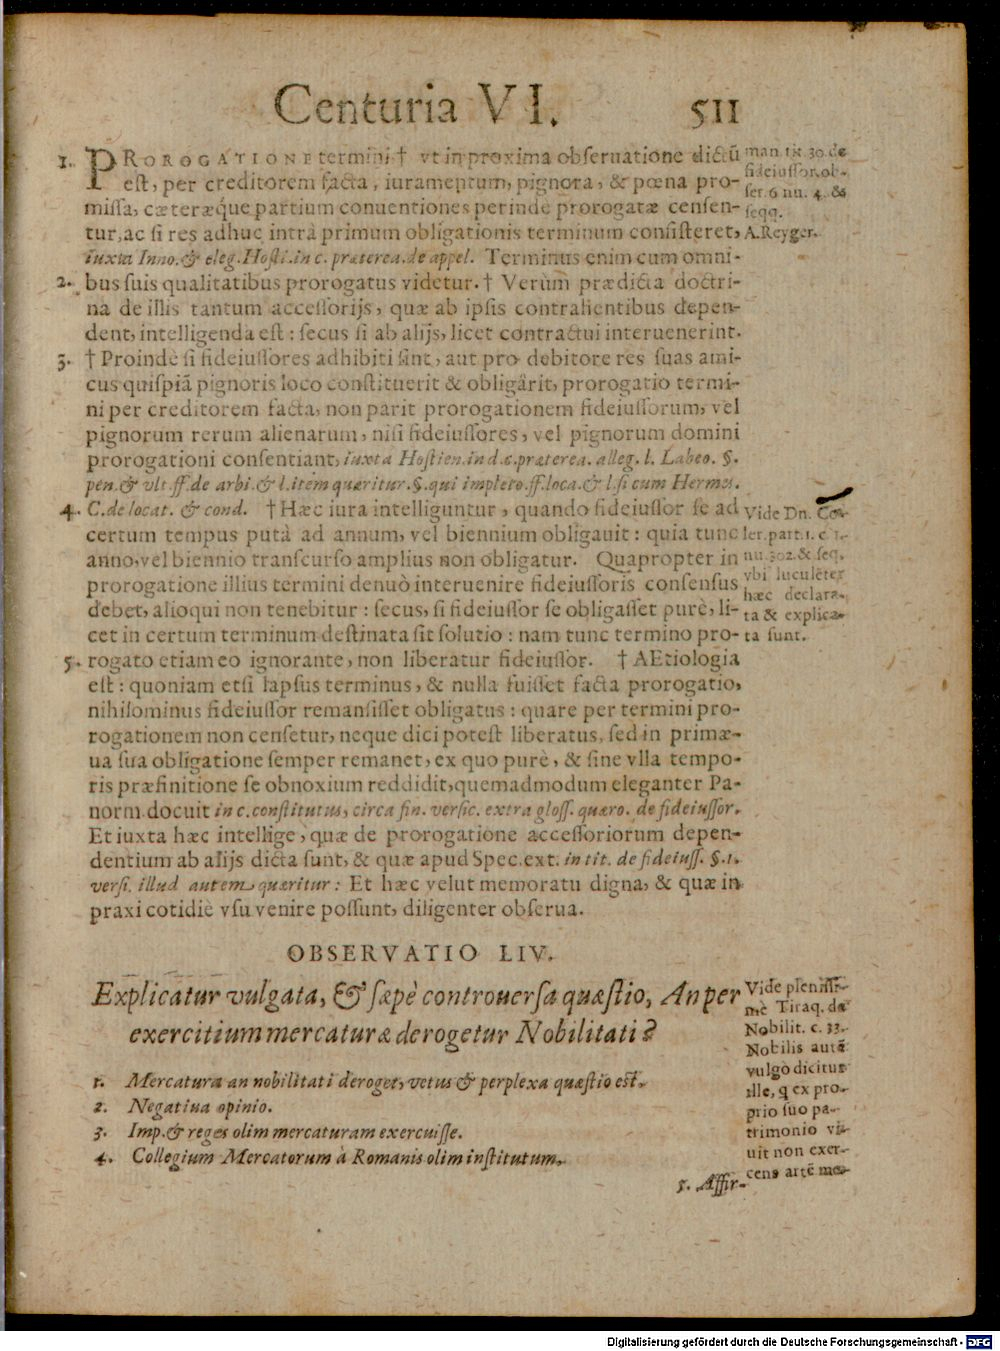 Centuria VI. 511
1. PROROGATIONE termini † vt in proxima obseruatione dictũ
est, per creditorem facta, iuramentum, pignora, & pœna pro-
missa, cæteræq́ue partium conuentiones perinde prorogatæ censen-
tur, ac si res adhuc intrà primum obligationis terminum consisteret,
iuxta Inno. & eleg. Hosti. in c. præterea. de appel. Terminus enim cum omni-
2. bus suis qualitatibus prorogatus videtur. † Verùm prædicta doctri-
na de illis tantum accessorijs, quæ ab ipsis contrahentibus depen-
dent, intelligenda est: secus si ab alijs, licet contractui interuenerint.
3. † Proindè si fideiussores adhibiti sint, aut pro debitore res suas ami-
cus quispiã pignoris loco constituerit & obligârit, prorogatio termi-
ni per creditorem facta, non parit prorogationem fideiussorum, vel
pignorum rerum alienarum, nisi fideiussores, vel pignorum domini
prorogationi consentiant, iuxta Hostien. in d. c. præterea. alleg. l. Labeo. §.
pen. & vlt. ff. de arbi. & l. item quæritur. §. qui impleto. ff. loca. & l. si cum Hermes.
4. C. de locat. & cond. † Hæc iura intelliguntur, quando fideiussor se ad
certum tempus putà ad annum, vel biennium obligauit: quia tunc
anno, vel biennio transcurso amplius non obligatur. Quapropter in
prorogatione illius termini denuò interuenire fideiussoris consensus
debet, alioqui non tenebitur: secus, si fideiussor se obligasset purè, li-
cet in certum terminum destinata sit solutio: nam tunc termino pro-
5. rogato etiam eo ignorante, non liberatur fideiussor. † AEtiologia
est: quoniam etsi lapsus terminus, & nulla fuisset facta prorogatio,
nihilominus fideiussor remansisset obligatus: quare per termini pro-
rogationem non censetur, neque dici potest liberatus, sed in primæ-
ua sua obligatione semper remanet, ex quo purè, & sine vlla tempo-
ris præfinitione se obnoxium reddidit, quemadmodum eleganter Pa-
norm. docuit in c. constitutus, circa fin. versic. extra gloss. quæro. de fideiussor.
Et iuxta hæc intellige, quæ de prorogatione accessoriorum depen-
dentium ab alijs dicta sunt, & quæ apud Spec. ext. in tit. de fideiuss. §. 1.
versi. illud autem quæritur: Et hæc velut memoratu digna, & quæ in
praxi cotidiè vsu venire possunt, diligenter obserua.
man. tit. 30. de
fideiussor. ob-
ser. 6 nu. 4. &
seqq.
A. Reyger.
Vide Dn.
ler. part. 1. c. 1.
nu. 302. & seq.
vbi luculẽter
hæc declara-
ta & explica-
ta sunt.
OBSERVATIO LIV.
Explicatur vulgata, & sæpè controuersa quæstio, An per
exercitium mercaturæ derogetur Nobilitati?
1. Mercatura an nobilitati deroget, vetus & perplexa quæstio est.
2. Negatiua opinio.
3. Imp. & reges olim mercaturam exercuisse.
4. Collegium Mercatorum à Romanis olim institutum.
Vide plenissi-
mè Tiraq. de
Nobilit. c. 33.
Nobilis autẽ
vulgò dicitur
ille, q ex pro-
prio suo pa-
trimonio vi-
uit non exer-
cens artẽ me-
5. Affir-
Digitalisierung gefördert durch die Deutsche Forschungsgemeinschaft - DFG